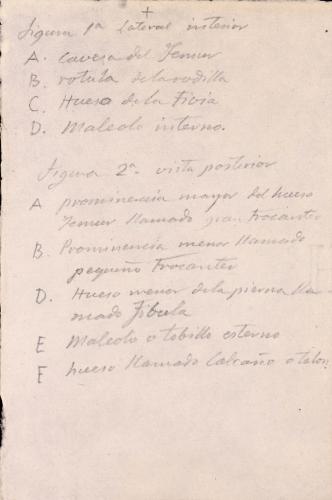 +
figura 1ª lateral interior
A. cavesa del Femur
B. rotula de la rodilla
C. Hueso de la Tivia
D. Maleolo interno.
figura 2ª vista posterior
A prominencia mayor del hueso
Femur llamado gran Trocanter
B. Prominencia menor llamado
pequeño Trocanter
D. Hueso menor de la pierna lla-
mado Fibula
E Maleolo o tobillo esterno
F hueso llamado Calcaño o talon